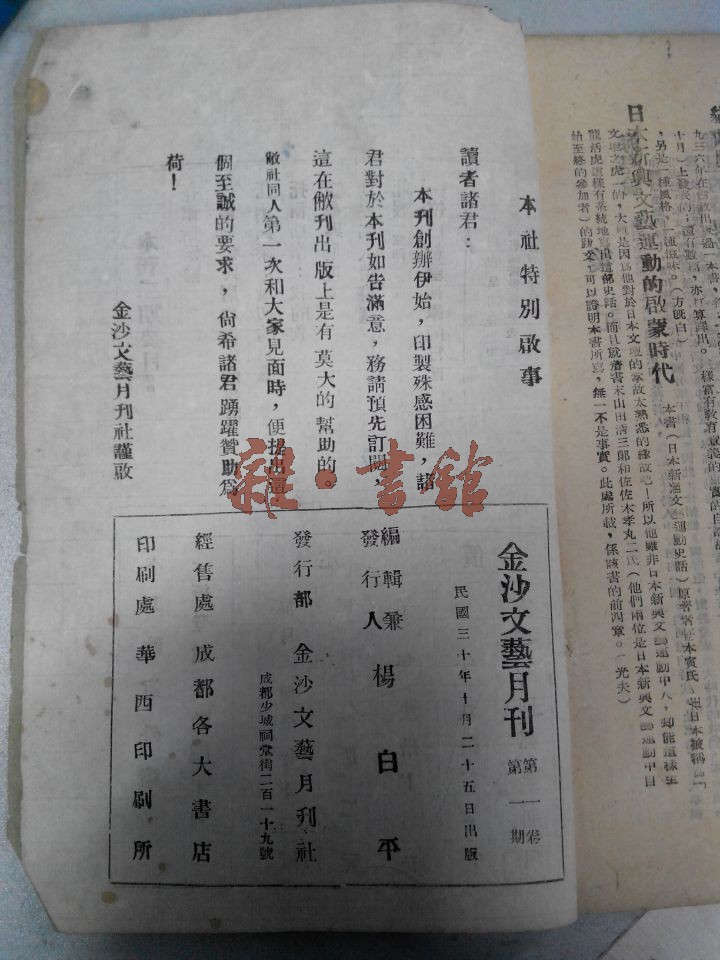 日本新興文藝運動的啟蒙時代
本書(日本新興文藝運動史話)原著者
文壇之虎」的,大概是因爲他對於日本文壇的掌故太熟悉的緣故吧!所以他雖非日本新興文藝運動中人,却能這樣生
龍活虎這樣有系統地寫出這部史話。而且就書末山田清三郎和佐佐木孝丸二氏(他們兩位是日本新興文藝運動中自
始至終的參加者)的跋文,可以證明本書所寫,無一不是事實。此處所載,係該書的前四章。(光夫)
本社特別啟事
讀者諸君:
本刊創辦伊始,印製殊感困難,諸
君對於本刊如告滿意,務請預先訂閱,
這在敝刊出版上是有莫大的幫助的。
敝社同人第一次和大家見面時,便提出這
個至誠的要求,尙希諸君踴躍贊助爲
荷!
金沙文藝月刊社謹啟
金沙文藝月刊
第一卷
第一期
民國三十年十月二十五日出版
編輯兼
發行人 楊白平
發行部 金沙文藝月刊社
成都少城祠堂街二百一十九號
經售處 成都各大書店
印刷處 華西印刷所
雜·書館